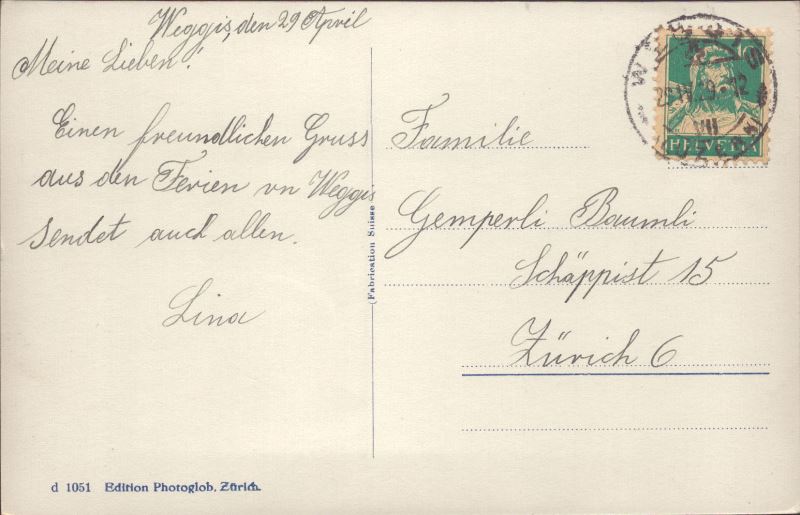 Weggis, den 29 April
Meine Lieben!
Einen freundlichen Gruss
aus den Ferien vn Weggis
sendet auch allen.
Lina
(Fabrication Suisse)
d 1051 Edition Photoglob, Zürich.
WEGGIS
VII
HELVETIA
Familie
Gemperli Baumli
Schäppist 15
Zürich 6